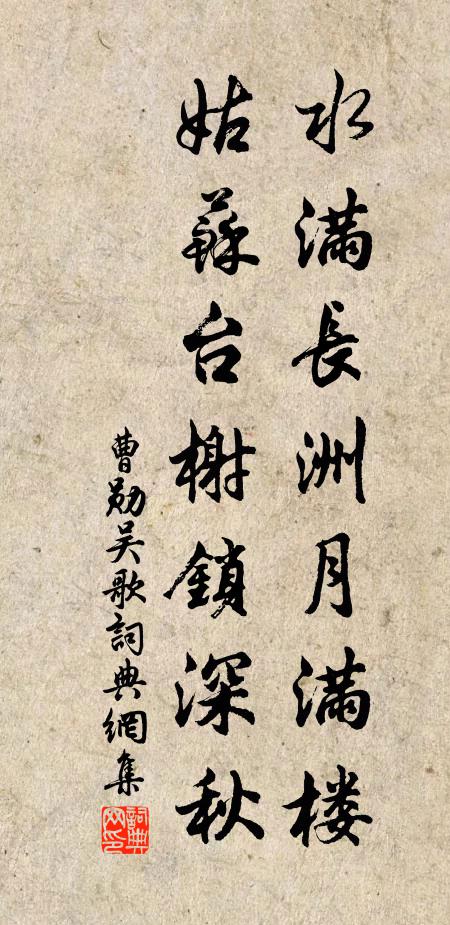 水滿長洲月滿楼
姑蘇台榭鎖深秋
曹勛吴歌詞典網集
詞典網印